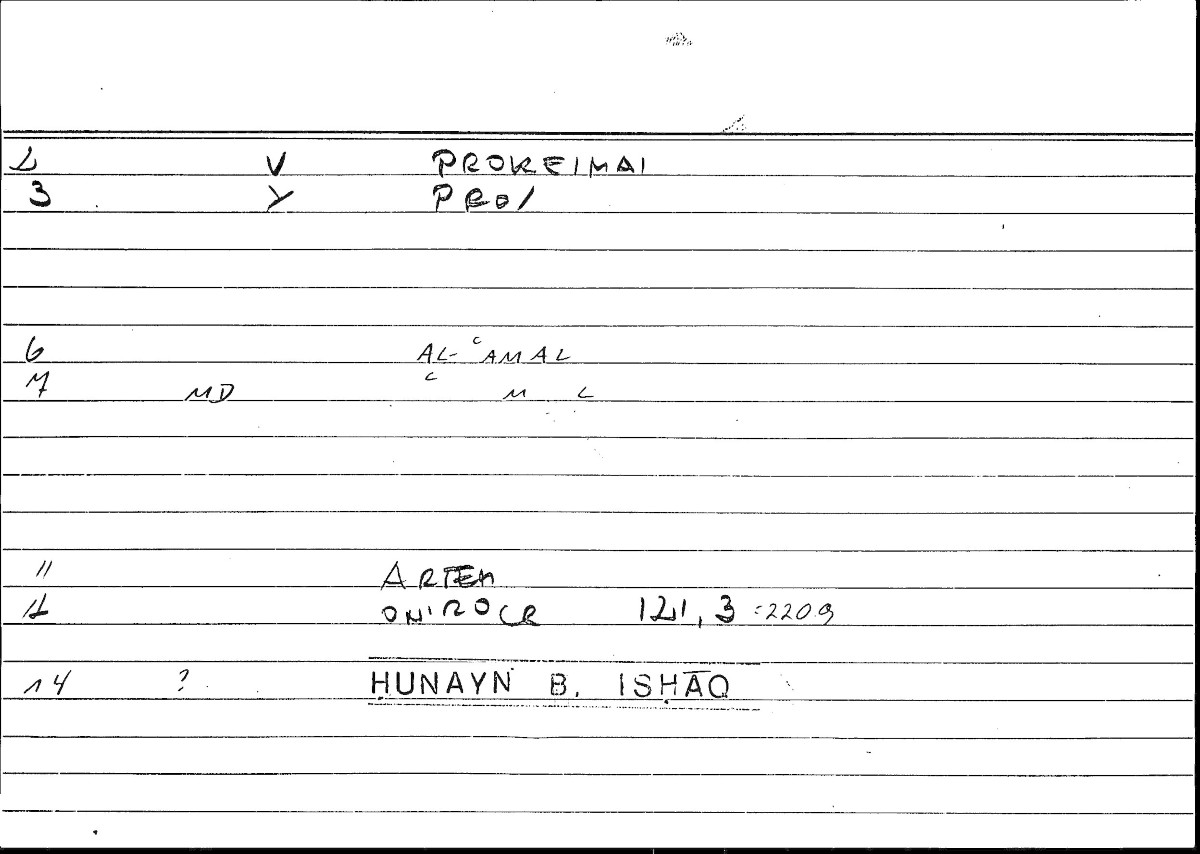 2 V PROKEIMAI
3 V PRO/
6 AL-ʿAMAL
7 MD ʿ M L
11 ARTEM
12 ONIROCR 121,3 =220.9
14 ? ḤUNAYN B. ISḤĀQ